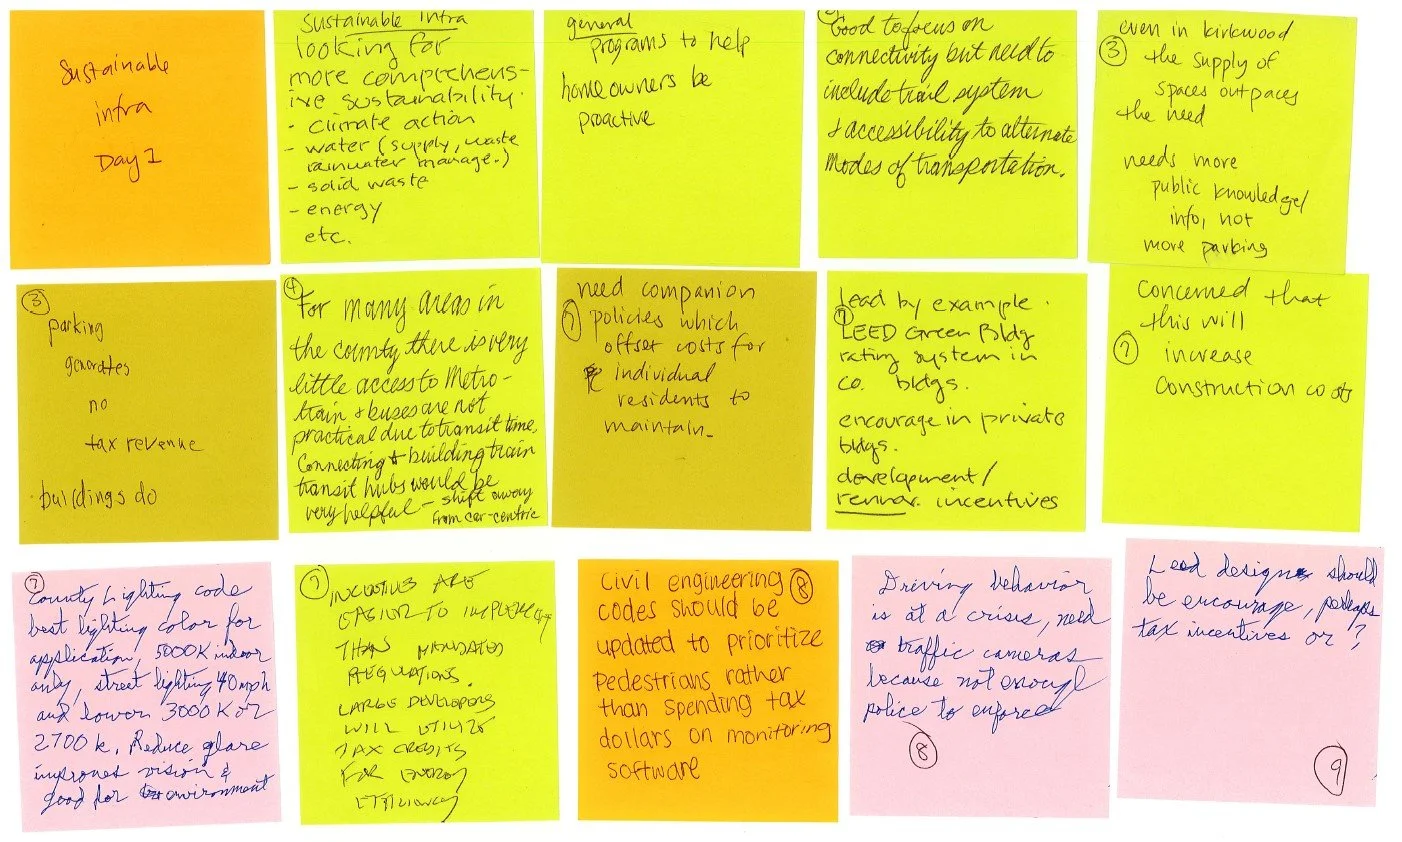 Sustainable
infra
Day 1
Sustainable Infra
looking for
more comprehens-
ive sustainability.
- climate action
- water (supply, waste
rainwater manage.)
- solid waste
- energy
etc.
general
programs to help
homeowners be
proactive
Good to focus on
connectivity but need to
include trail system
+ accessibility to alternate
modes of transportation.
even in kirkwood
③ the supply of
spaces outpaces
the need
needs more
public knowledge/
info, not
more parking
③
parking
generates
no
tax revenue
buildings do
④
For many areas in
the county there is very
little access to Metro-
train + buses are not
practical due to transit time.
Connecting + building train
transit hubs would be
very helpful - shift away
from car-centric
need companion
⑦ policies which
offset costs for
individual
residents to
maintain.
Lead by example.
⑦ LEED Green Bldg
rating system in
co. bldgs.
encourage in private
bldgs.
development/
rennov. incentives
Concerned that
this will
⑦ increase
construction costs
⑦
County Lighting code
best lighting color for
application, 5000K indoor
only, street lighting 40 mph
and lower 3000K or
2700k. Reduce glare
improves vision &
good for environment
⑦ INCENTIVES ARE
EASIER TO IMPLEMENT
THAN MANDATED
REGULATIONS.
LARGE DEVELOPERS
WILL UTILIZE
TAX CREDITS
FOR ENERGY
EFFICIENCY
Civil engineering ⑧
codes should be
updated to prioritize
pedestrians rather
than spending tax
dollars on monitoring
software
Driving behavior
is at a crisis, need
traffic cameras
because not enough
police to enforce
⑧
Leed design should
be encourage, perhaps
tax incentives or?
⑨